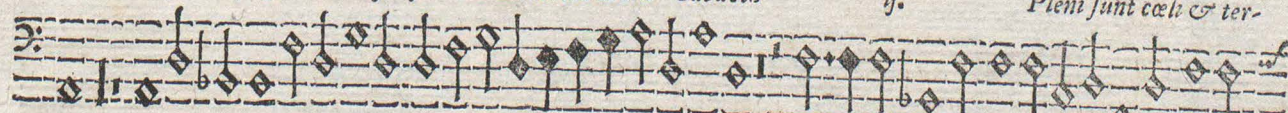 ij. Pleni sunt cœli & ter-